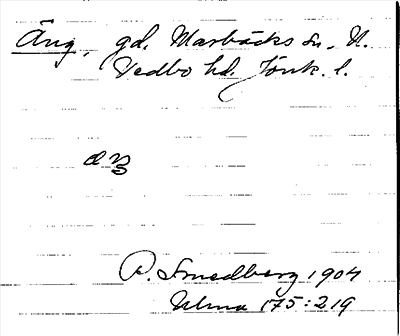 Äng, gd. Marbäcks sn. N.
Vedbo hd. Jönk. l.
A. Smedberg 1904
Ulma 175:219